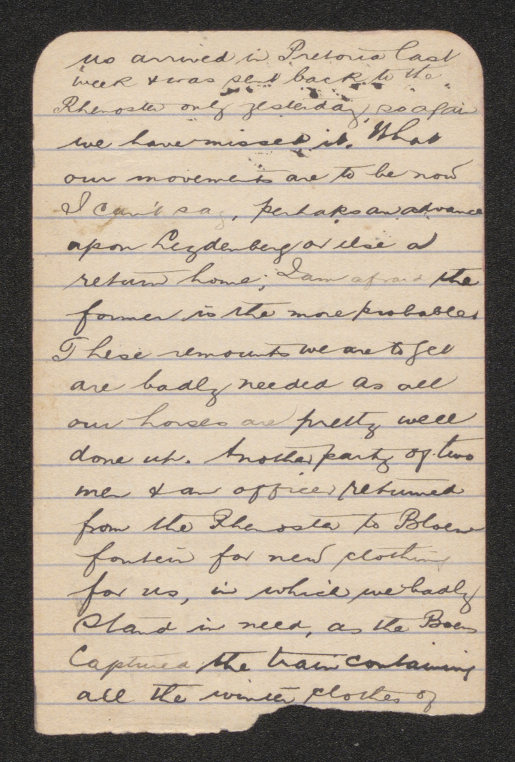 us arrived in Pretoria last
week & was sent back to the
Rhenoster only yesterday, so again
we have missed it. What
our movements are to be now
I can't say, perhaps an advance
upon Leydenberg or else a
return home; I am afraid the
former is the more probable.
These remounts we are to get
are badly needed as all
our horses are pretty well
done up. Another party of two
men & an officer returned
from the Rhenoster to Bloem-
fontein for new clothing
for us, in which we badly
stand in need, as the Boers
Captured the train containing
all the winter clothes of